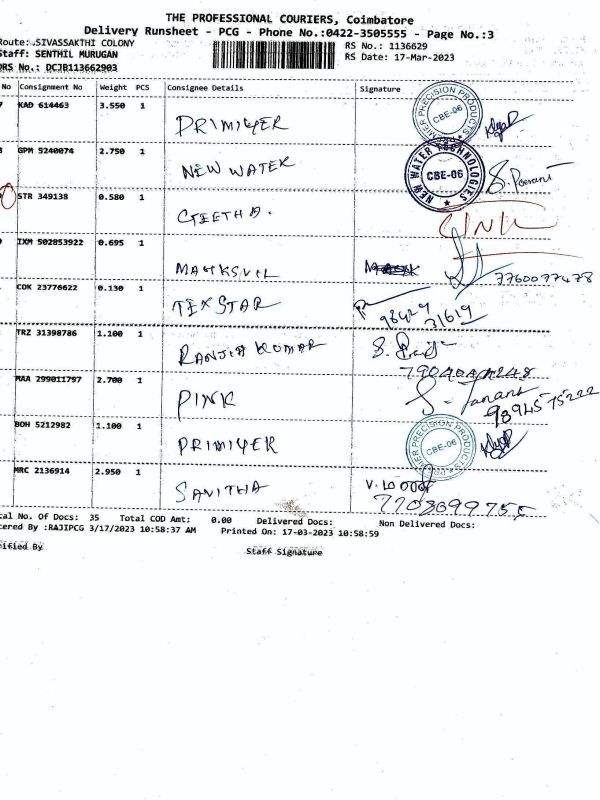 THE PROFESSIONAL COURIERS, Coimbatore
Delivery Runsheet - PCG - Phone No.:0422-3505555 - Page No.:3
Route: SIVASSAKTHI COLONY
Staff: SENTHIL MURUGAN
DRS No.: DCJB113662903
RS No.: 1136629
RS Date: 17-Mar-2023
No Consignment No Weight PCS Consignee Details Signature
KAD 614463 3.550 1 PRIMIYER
PRECISION PRODUCTS CBE-06
GPM 5240074 2.750 1 NEW WATER
NEW WATER TECHNOLOGIES CBE-06
STR 349138 0.580 1 GEETHA.
IXM 502853922 0.695 1 MAHKSVIL
7760077478
COK 23776622 0.130 1 TEXSTAR
98429
31619
TRZ 31398786 1.100 1 RANJITH KUMAR
MAA 299011797 2.700 1 PINK
98945 75222
BOH 5212982 1.100 1 PRIMIYER
PRECISION PRODUCTS CBE-06
MRC 2136914 2.950 1 SAVITHA
al No. Of Docs: 35 Total COD Amt: 0.00 Delivered Docs: Non Delivered Docs:
ered By :RAJIPCG 3/17/2023 10:58:37 AM Printed On: 17-03-2023 10:58:59
ified By
Staff Signature